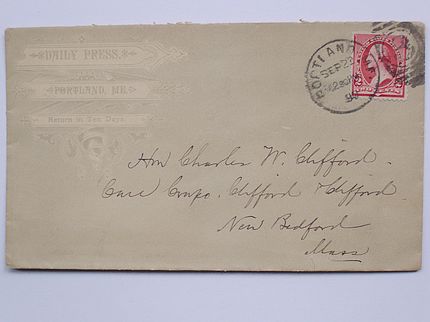 DAILY PRESS.
PORTLAND, ME.
Return in Ten Days.
PORTLAND
SEP 22
Hon Charles W. Clifford.
Care Crapo, Clifford & Clifford
New Bedford
Mass